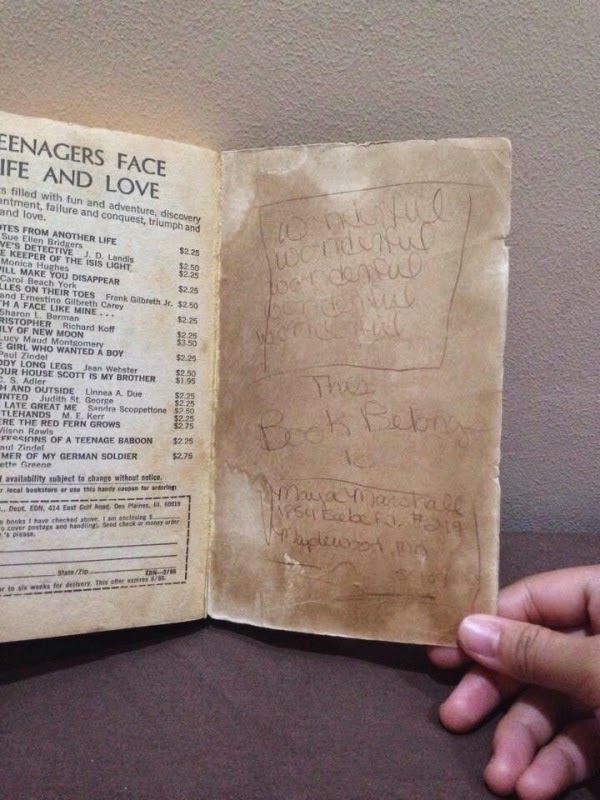 EENAGERS FACE
IFE AND LOVE
s filled with fun and adventure, discovery
ntment, failure and conquest, triumph and
and love.
OTES FROM ANOTHER LIFE
Sue Ellen Bridgers $2.25
VE'S DETECTIVE J. D. Landis
E KEEPER OF THE ISIS LIGHT $2.50
Monica Hughes $2.25
ILL MAKE YOU DISAPPEAR
Carol Beach York $2.25
LLES ON THEIR TOES Frank Gilbreth Jr. $2.50
and Ernestine Gilbreth Carey
TH A FACE LIKE MINE . . . $2.25
Sharon L. Berman
RISTOPHER Richard Koff $2.25
ILY OF NEW MOON $3.50
Lucy Maud Montgomery
E GIRL WHO WANTED A BOY $2.25
Paul Zindel
DDY LONG LEGS Jean Webster $2.50
OUR HOUSE SCOTT IS MY BROTHER $1.95
C. S. Adler
H AND OUTSIDE Linnea A. Due $2.25
UNTED Judith St. George $2.25
LATE GREAT ME Sandra Scoppettone $2.50
TLEHANDS M. E. Kerr $2.25
ERE THE RED FERN GROWS $2.75
Wilson Rawls
FESSIONS OF A TEENAGE BABOON $2.25
aul Zindel
MER OF MY GERMAN SOLDIER $2.75
ette Greene
d availability subject to change without notice.
r local bookstore or use this handy coupon for ordering:
, Dept. EDN, 414 East Golf Road, Des Plaines, Ill. 60016
e books I have checked above. I am enclosing $
o cover postage and handling). Send check or money order
's please.
State/Zip
EDN—3/86
ur to six weeks for delivery. This offer expires 9/86.
wonderful
wonderful
wonderful
wonderful
wonderful
This
Book Belon
to
Maya Marshall
Maplewood, mn